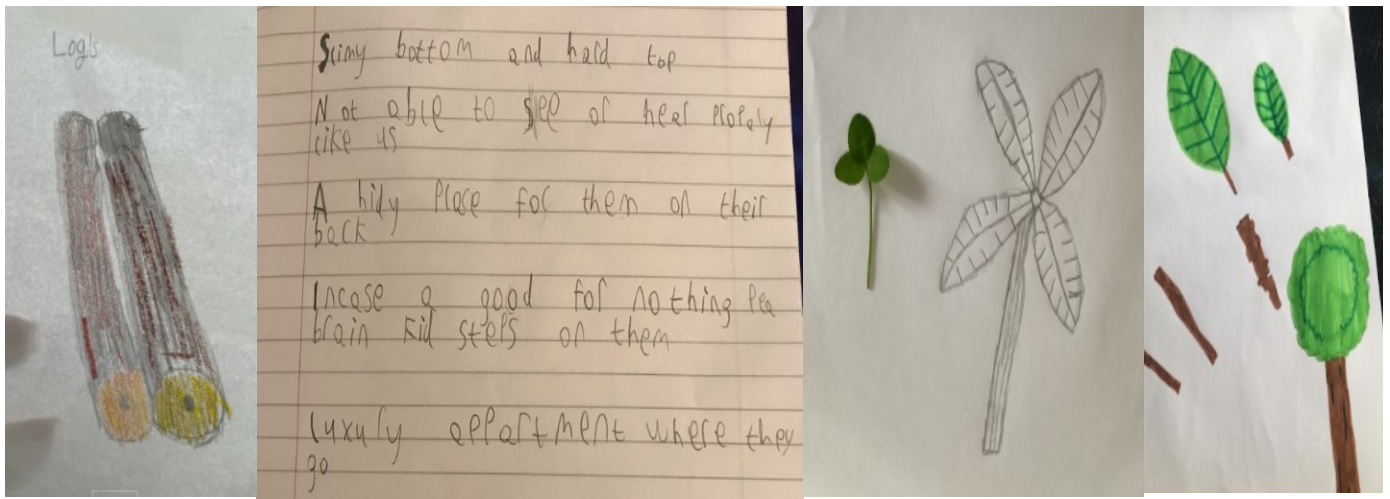 Log's
Slimy bottom and hard top
Not able to see or hear properly
like us
A hidy place for them on their
back
Incase a good for nothing Pea
brain kid steps on them
luxury appartment where they
go